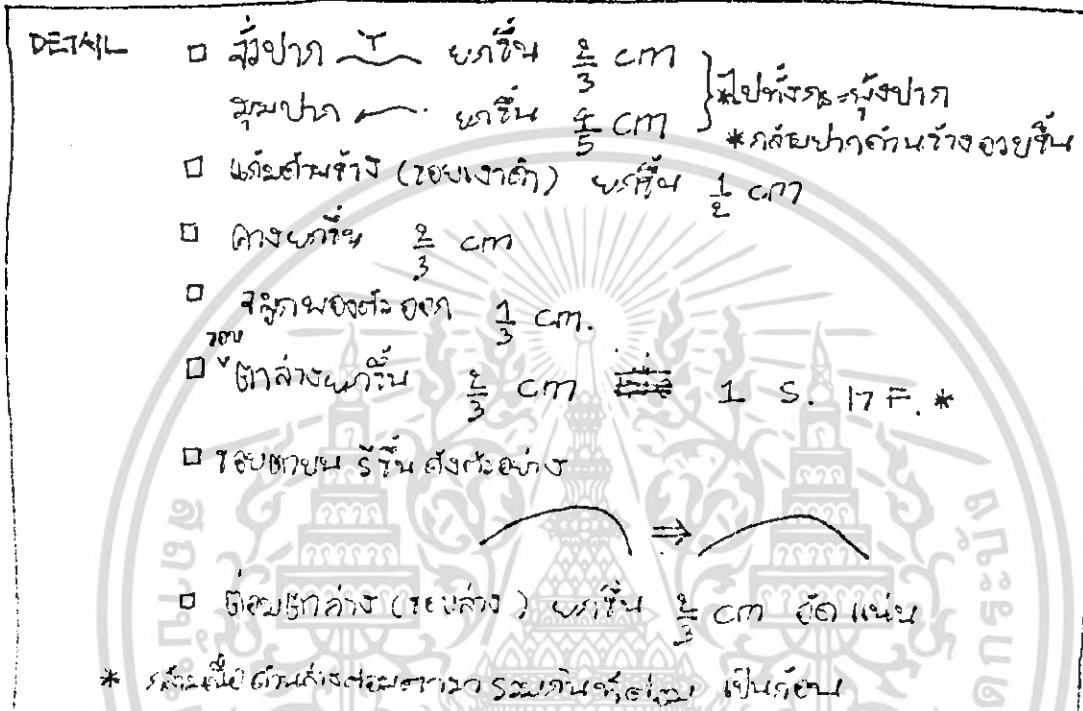 DETAIL □ จั่วปาก ยกขึ้น 2/3 cm
มุมปาก ยกขึ้น 4/5 cm } *ไปทั้งกระพุ้งปาก
*กล้ามปากด้านข้างอวบขึ้น
□ แก้มด้านข้าง (รอบเงาดำ) ยกขึ้น 1/2 cm
□ คางยกขึ้น 2/3 cm
□ จมูกพอง ออก 1/3 cm.
□ ขอบตาล่างยกขึ้น 2/3 cm 1 S. 17 F. *
□ ขอบตาบน รีขึ้น ดังตัวอย่าง
⇒
□ ต่อมตาล่าง (ขอบล่าง) ยกขึ้น 2/3 cm อัดแน่น
* กล้ามเนื้อด้านล่างต่อมตา รวมกัน เป็นก้อน